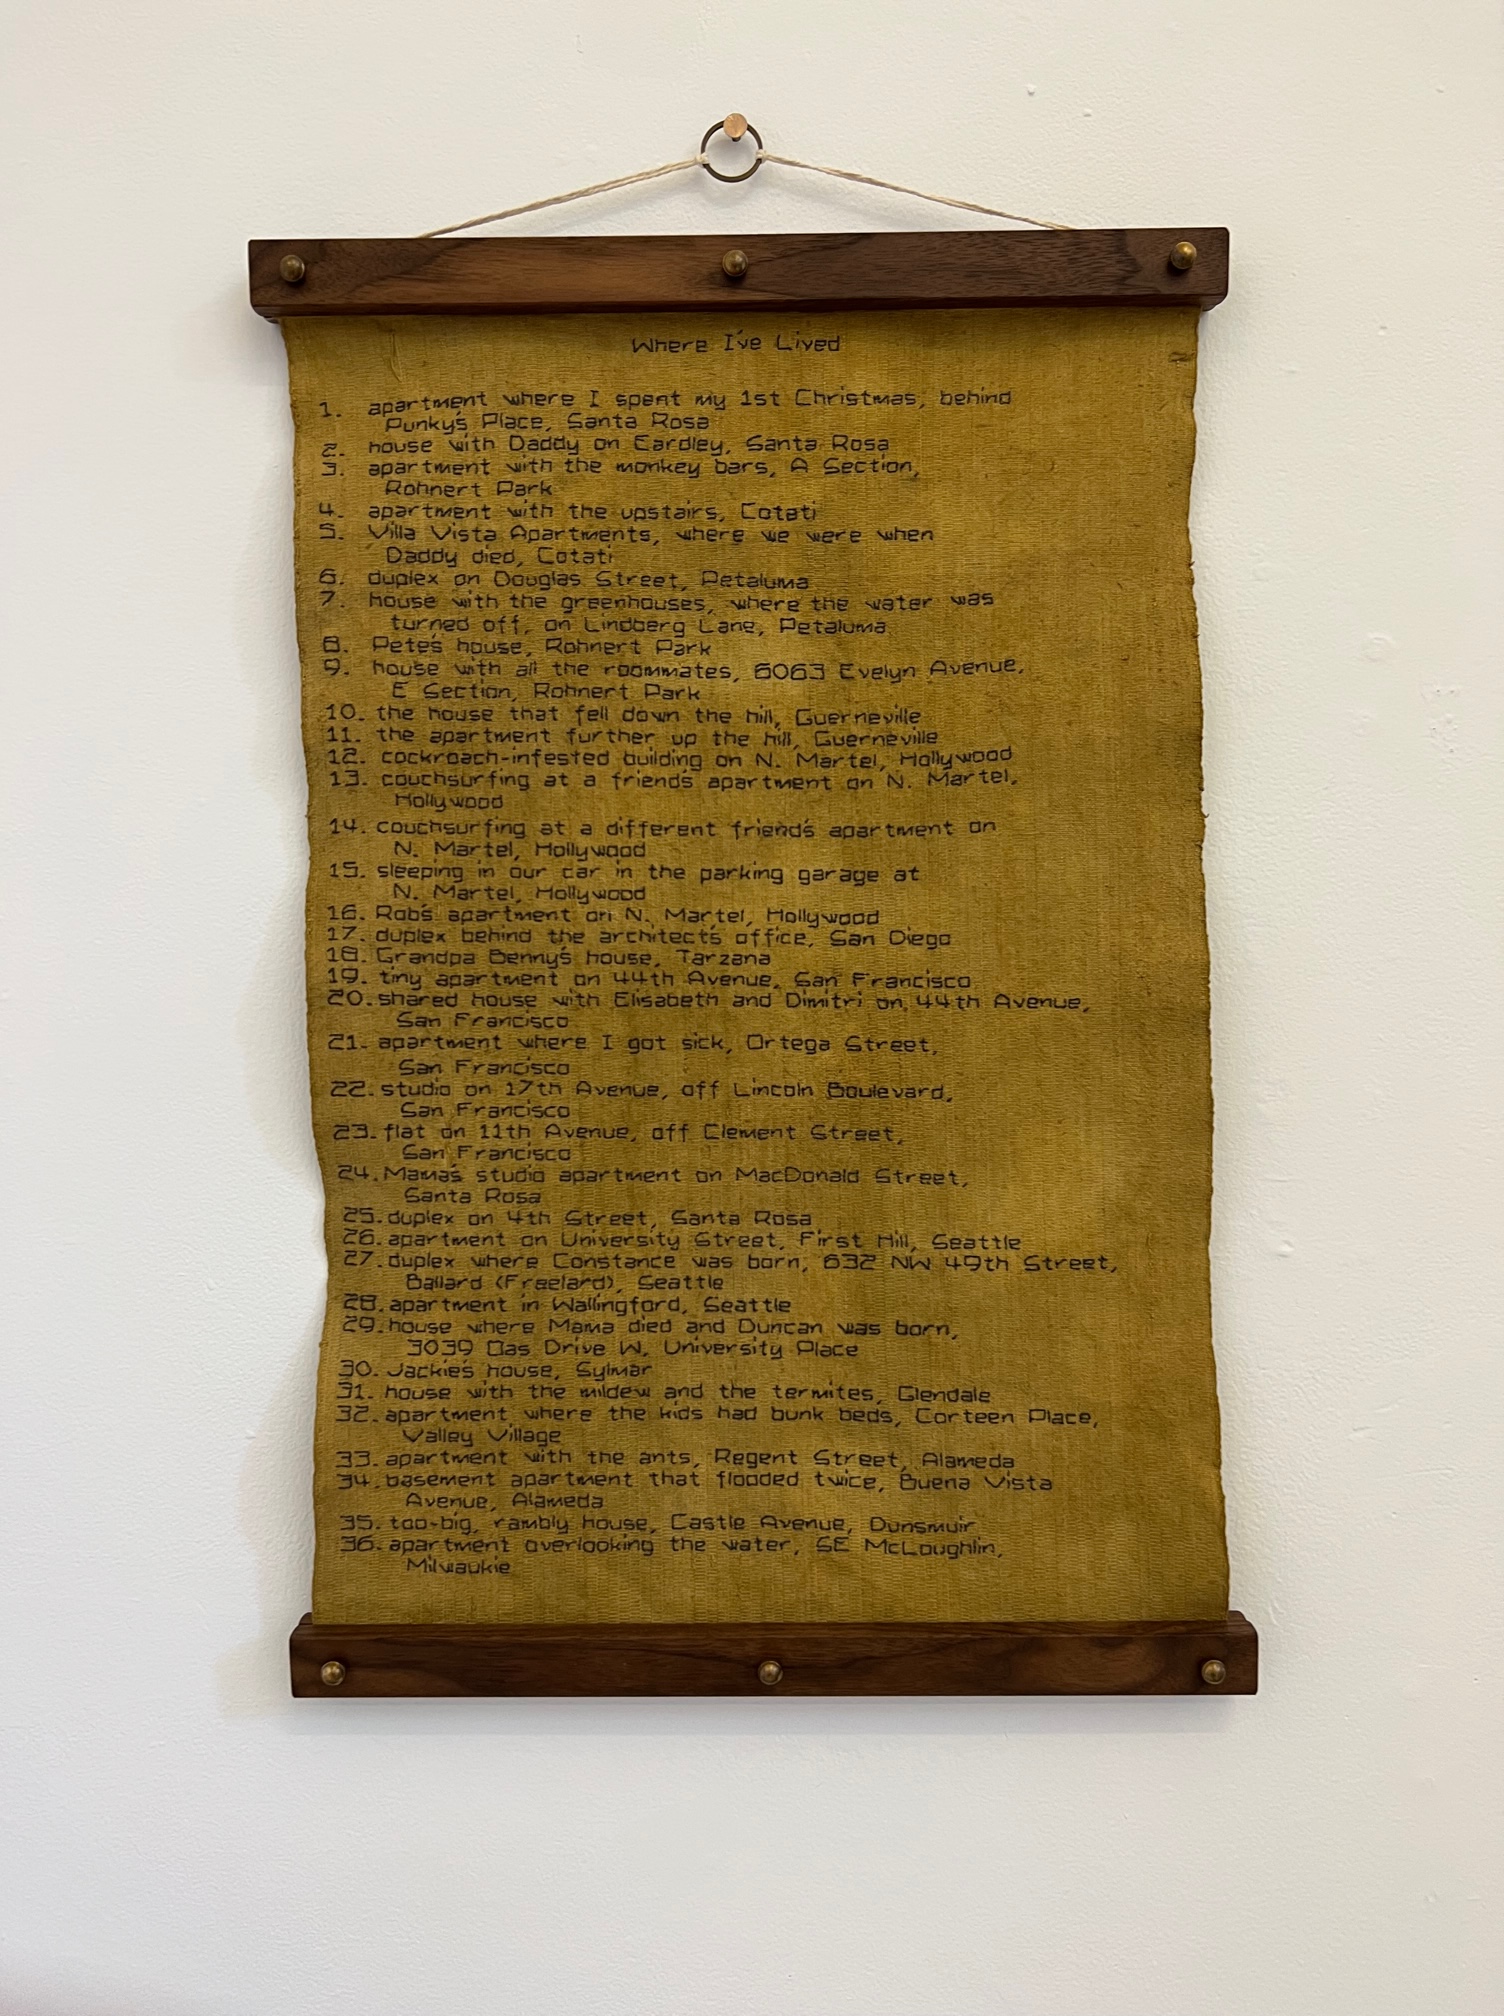 Where I've Lived
1. apartment where I spent my 1st Christmas, behind
Punky's Place, Santa Rosa
2. house with Daddy on Eardley, Santa Rosa
3. apartment with the monkey bars, A Section,
Rohnert Park
4. apartment with the upstairs, Cotati
5. Villa Vista Apartments, where we were when
Daddy died, Cotati
6. duplex on Douglas Street, Petaluma
7. house with the greenhouses, where the water was
turned off, on Lindberg Lane, Petaluma
8. Pete's house, Rohnert Park
9. house with all the roommates, 6063 Evelyn Avenue,
E Section, Rohnert Park
10. the house that fell down the hill, Guerneville
11. the apartment further up the hill, Guerneville
12. cockroach-infested building on N. Martel, Hollywood
13. couchsurfing at a friend's apartment on N. Martel,
Hollywood
14. couchsurfing at a different friend's apartment on
N. Martel, Hollywood
15. sleeping in our car in the parking garage at
N. Martel, Hollywood
16. Rob's apartment on N. Martel, Hollywood
17. duplex behind the architect's office, San Diego
18. Grandpa Benny's house, Tarzana
19. tiny apartment on 44th Avenue, San Francisco
20. shared house with Elisabeth and Dimitri on 44th Avenue,
San Francisco
21. apartment where I got sick, Ortega Street,
San Francisco
22. studio on 17th Avenue, off Lincoln Boulevard,
San Francisco
23. flat on 11th Avenue, off Clement Street,
San Francisco
24. Mama's studio apartment on MacDonald Street,
Santa Rosa
25. duplex on 4th Street, Santa Rosa
26. apartment on University Street, First Hill, Seattle
27. duplex where Constance was born, 632 NW 49th Street,
Ballard (Freelard), Seattle
28. apartment in Wallingford, Seattle
29. house where Mama died and Duncan was born,
3039 Oas Drive W, University Place
30. Jackie's house, Sylmar
31. house with the mildew and the termites, Glendale
32. apartment where the kids had bunk beds, Corteen Place,
Valley Village
33. apartment with the ants, Regent Street, Alameda
34. basement apartment that flooded twice, Buena Vista
Avenue, Alameda
35. too-big, rambly house, Castle Avenue, Dunsmuir
36. apartment overlooking the water, SE McLoughlin,
Milwaukie